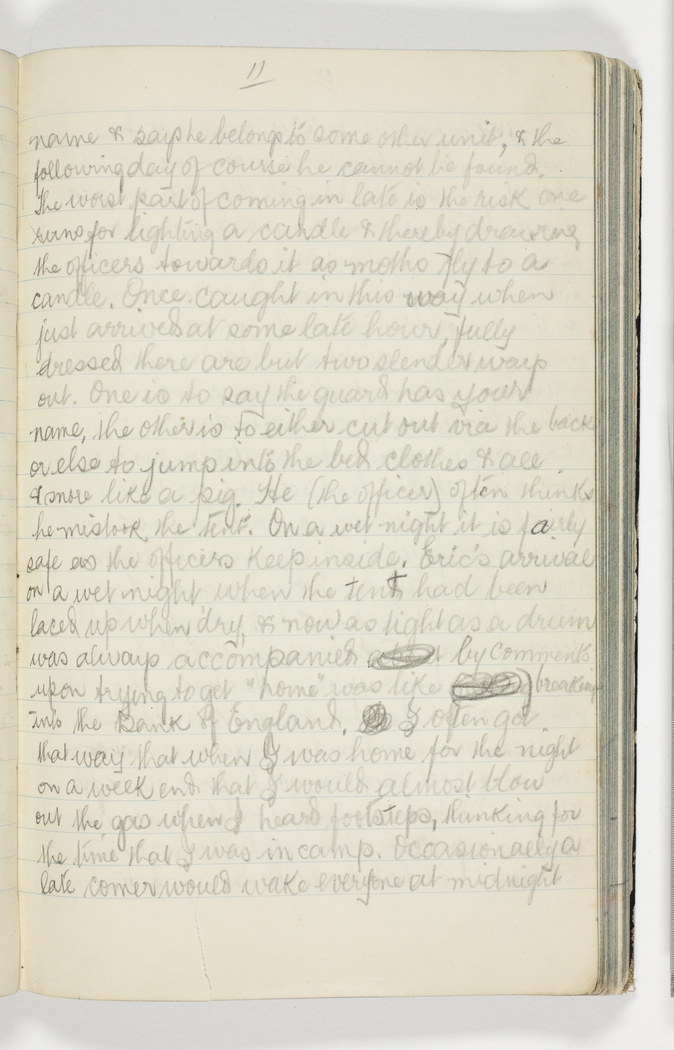 11
name & says he belongs to some other unit, & the
following day of course he cannot be found.
The worst part of coming in late is the risk one
runs for lighting a candle & thereby drawing
the officers towards it as moths fly to a
candle. Once caught in this way when
just arrived at some late hour, fully
dressed there are but two slender ways
out. One is to say the guard has your
name, the other is to either cut out via the back
or else to jump into the bed clothes & all
& snore like a pig. He (the officer) often thinks
he mistook the tent. On a wet night it is fairly
safe as the officers keep inside. Eric's arrival
on a wet night when the tent had been
laced up when dry, & now as tight as a drum
was always accompanied by comments
upon trying to get "home" was like breaking
into the Bank of England. I often got
that way that when I was home for the night
on a week end that I would almost blow
out the gas when I heard footsteps, thinking for
the time that I was in camp. Occasionally a
late comer would wake everyone at midnight